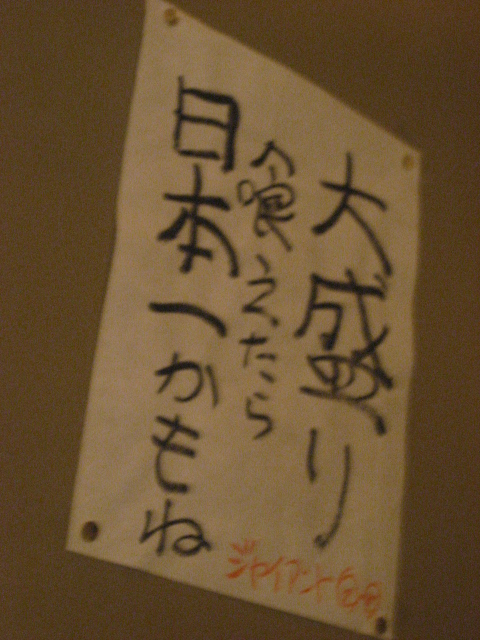 大盛り
喰えたら
日本一かもね
ジャイアント